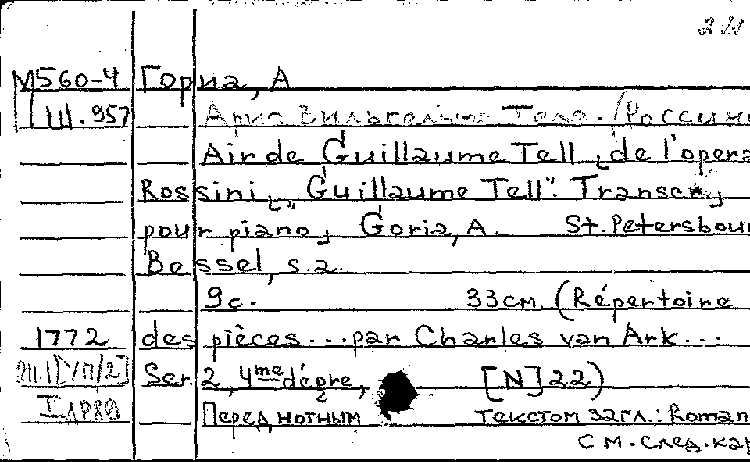 М560-4 Гориа, А
Ш.957 Ария Вильгельма Телл. (Россини
Air de Guillaume Tell, de l'opera
Rossini, "Guillaume Tell". Transcr.
pour piano, Goria, A. St. Petersbour
Bessel, s.a.
9с. 33см. (Répertoire
1772 des pièces...par Charles van Ark...
Ser 2, 4me dégre, [N] 22)
Перед нотным текстом загл.: Roman
См. след. кар